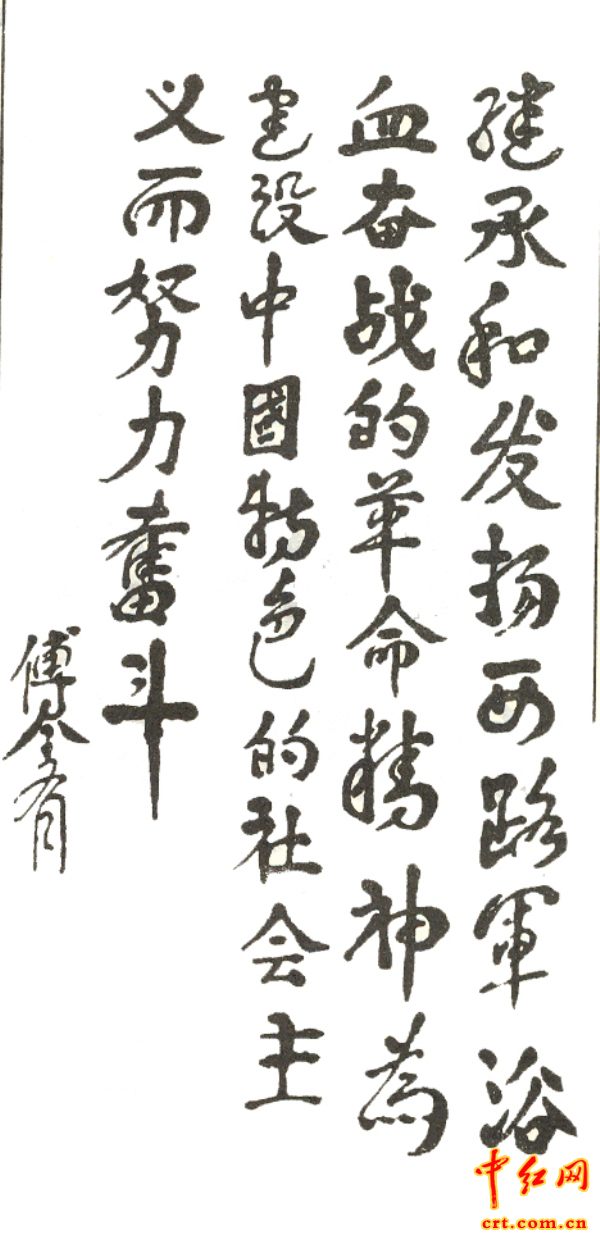 继承和发扬西路軍浴
血奋战的革命精神為
建设中國特色的社会主
义而努力奮斗
傅全有
中红网
crt.com.cn